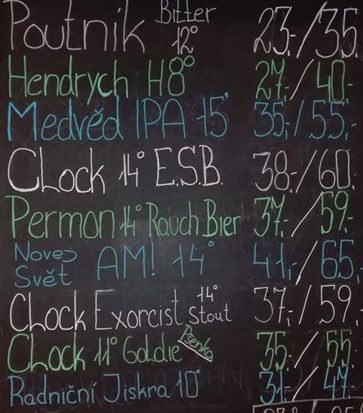 Poutnik Bitter 12° 23.-/35.
Hendrych H8° 27.-/40.-
Medvěd IPA 15° 35,-/55,-
Clock 14° E.S.B. 38.-/60.-
Permon 14° Rauch Bier 37.-/59.-
Nový Svět AM! 14° 41,-/65,-
Clock Exorcist 14° Stout 37.-/59.-
Clock 11° Goldie Pšenka 35:/55.
Radniční Jiskra 10° 31.-/47.-